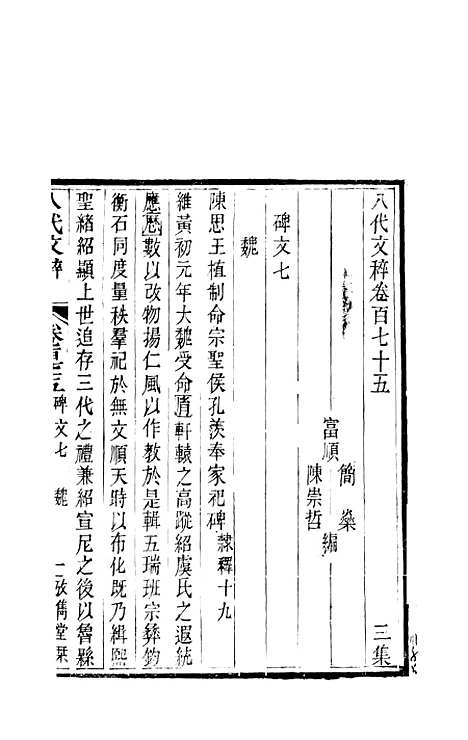 八代文稡卷百七十五 三集
富順 簡燊 陳崇哲 編
碑文七
魏
陳思王植制命宗聖侯孔羨奉家祀碑 隸釋十九
維黃初元年大魏受命𦙍軒轅之高蹤紹虞氏之遐統
應厯數以改物揚仁風以作教於是輯五瑞班宗彝鈞
衡石同度量秩羣祀於無文順天時以布化既乃緝熙
聖緒紹顯上世追存三代之禮兼紹宣尼之後以魯縣
八代文稡 卷百七十五 碑文七 魏 一 攷雋堂栞